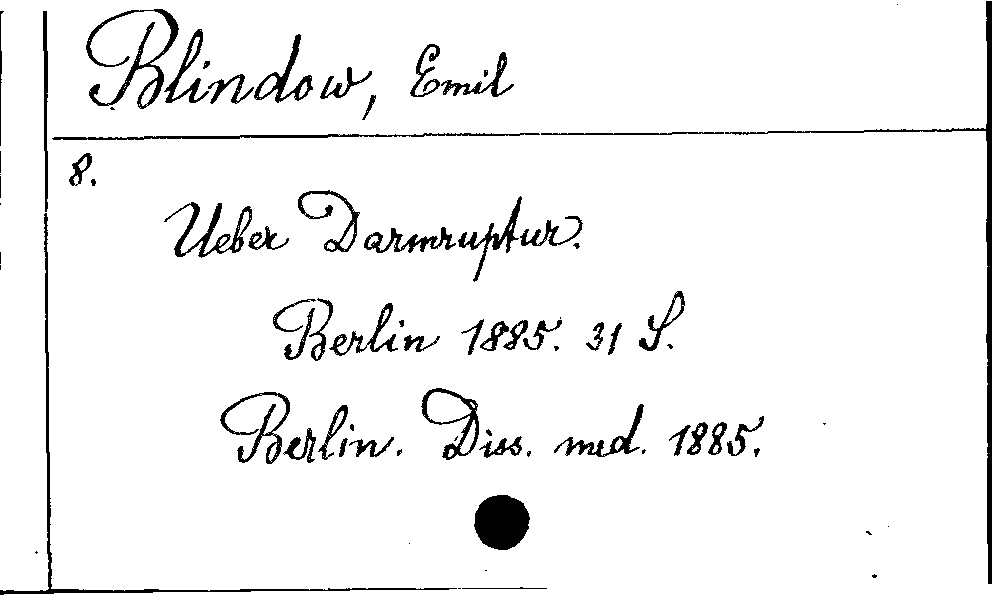 Blindow, Emil
8.
Ueber Darmruptur.
Berlin 1885. 31 S.
Berlin. Diss. med. 1885.